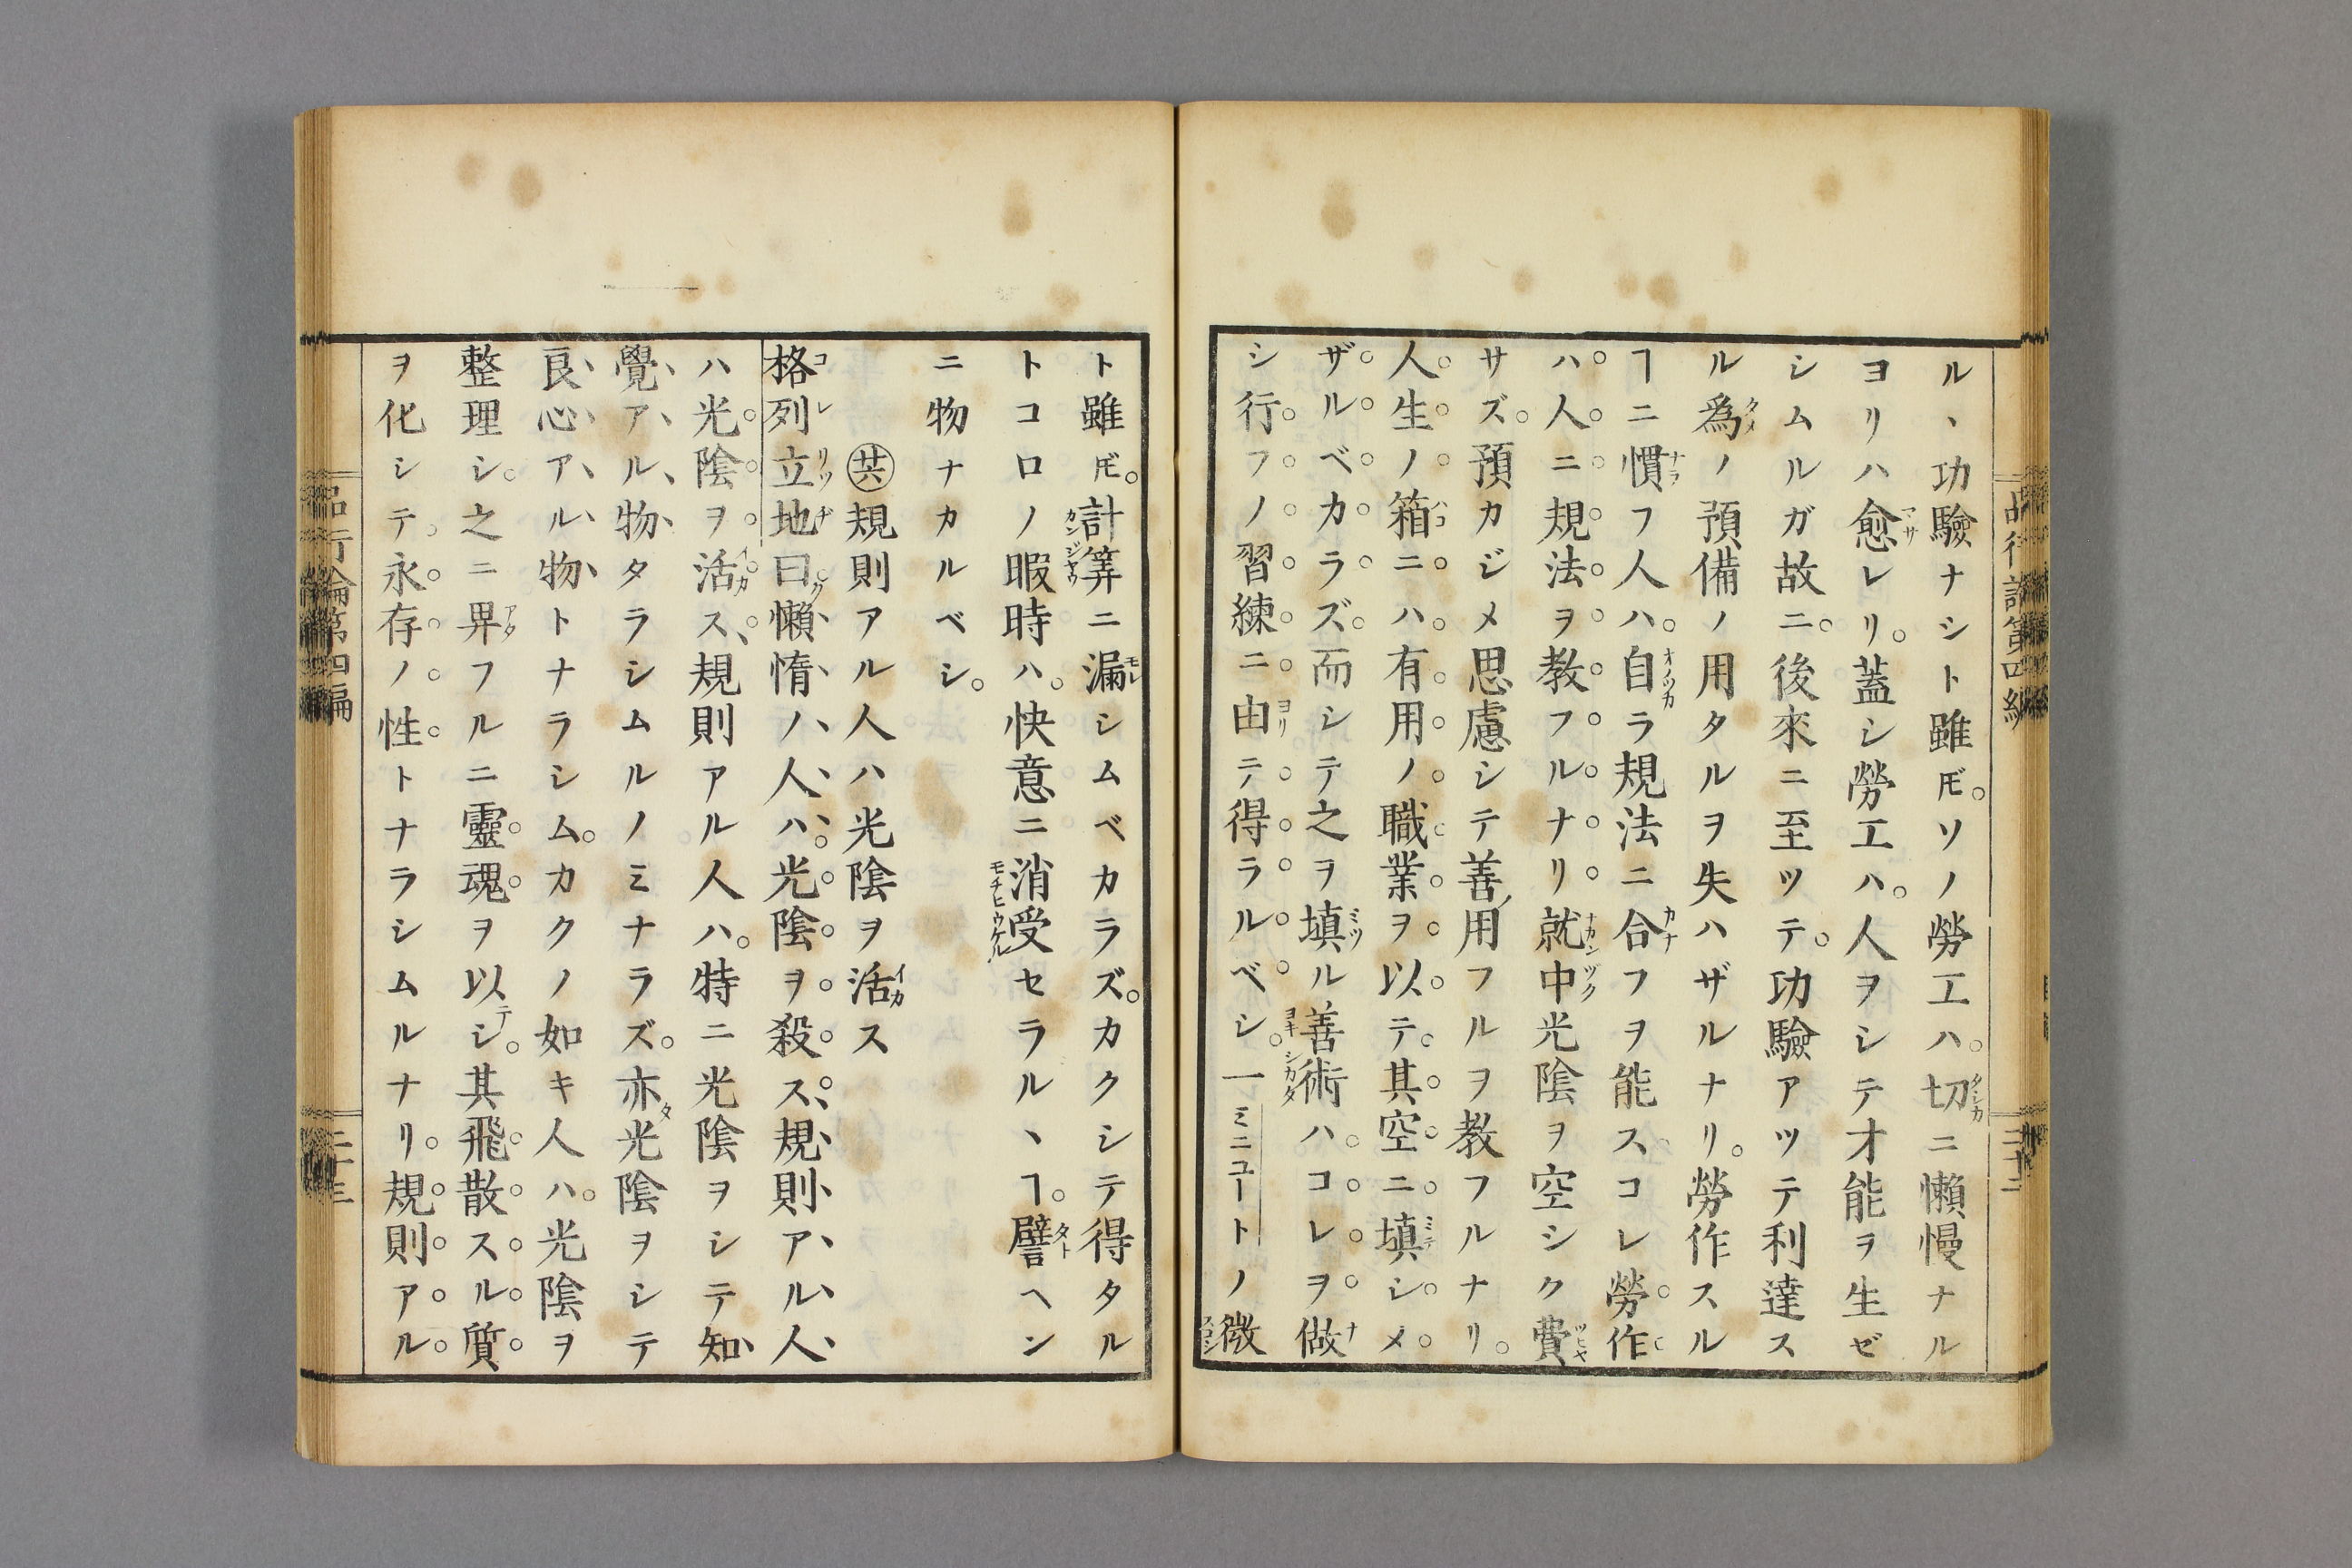 ル、功驗ナシト雖𪜈。ソノ勞工ハ。切ニ懶慢ナル
ヨリハ愈レリ。蓋シ勞工ハ。人ヲシテ才能ヲ生ゼ
シムルガ故ニ。後來ニ至ツテ。功驗アツテ利達ス
ル爲ノ預備ノ用タルヲ失ハザルナリ。勞作スル
ヿニ慣フ人ハ。自ラ規法ニ合フヲ能スコレ勞作
ハ人ニ規法ヲ教フルナリ就中光陰ヲ空シク費
サズ。預カジメ思慮シテ善用フルヲ教フルナリ。
人生ノ箱ニハ有用ノ職業ヲ以テ其空ニ填シメ
ザルベカラズ。而シテ之ヲ填ル善術ハ。コレヲ做
シ行フノ習練ニ由テ得ラルベシ。一ミニユートノ微
ト雖𪜈。計筭ニ漏シムベカラズ。カクシテ得タル
トコロノ暇時ハ。快意ニ消受セラル、ヿ。譬ヘン
ニ物ナカルベシ。
㊅規則アル人ハ光陰ヲ活ス
格列立地曰ク懶惰ノ人ハ。光陰ヲ殺ス、規則アル人
ハ光陰ヲ活ス、規則アル人ハ。特ニ光陰ヲシテ知
覺アル物タラシムルノミナラズ。亦タ光陰ヲシテ
良心アル物トナラシム。カクノ如キ人ハ。光陰ヲ
整理シ。之ニ畀フルニ靈魂ヲ以テシ。其飛散スル質
ヲ化シテ。永存ノ性トナラシムルナリ。規則アル
品行論第四編
二十三